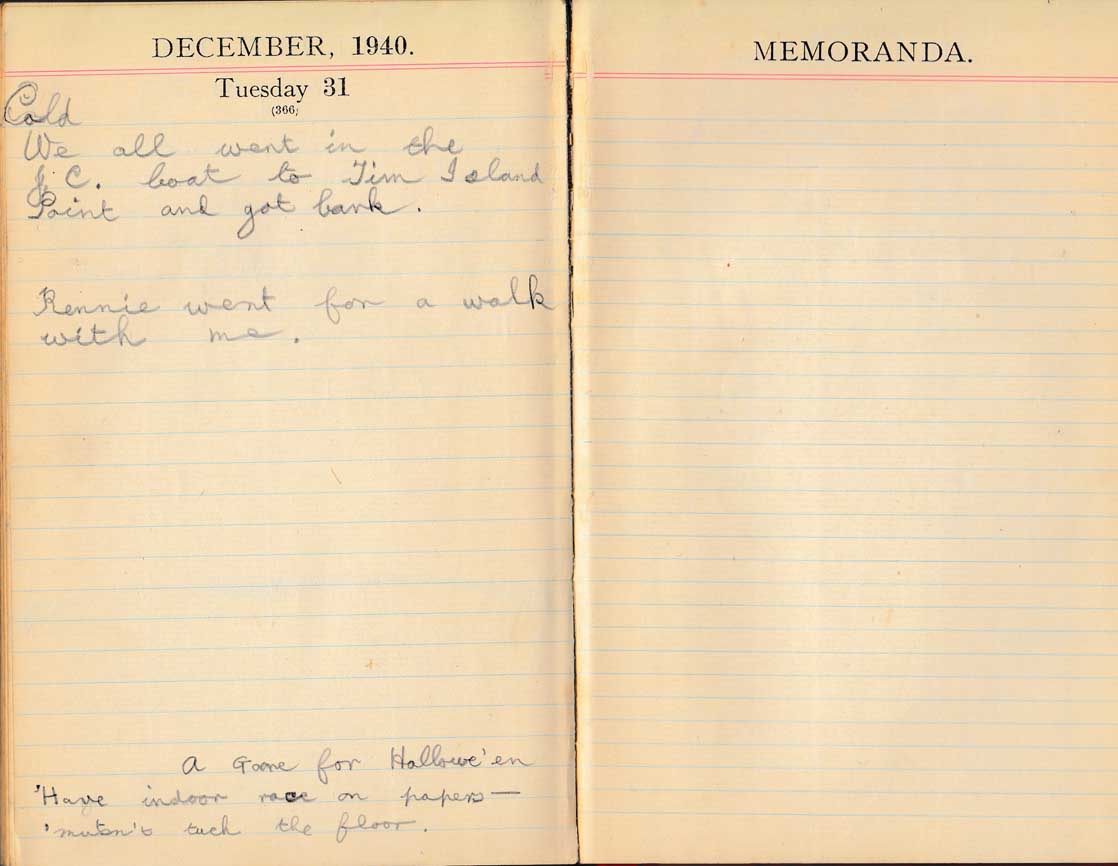 DECEMBER, 1940.
Tuesday 31
(366)
Cold
We all went in the
J. C. boat to Tim Island
Point and got bark.
Rennie went for a walk
with me.
A Game for Hallowe'en
'Have indoor race on papers—
'mutsn't tuch the floor.
MEMORANDA.